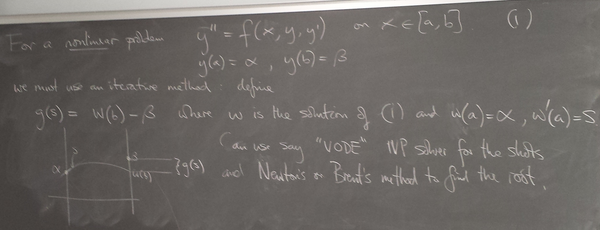 For a nonlinear problem y'' = f(x, y, y') on x ∈ [a, b] (1)
y(a) = α, y(b) = β
we must use an iterative method: define
g(s) = w(b) - β where w is the solution of (1) and w(a) = α, w'(a) = s
Can use say "VODE" IVP solver for the shots
and Newton's or Brent's method to find the root.
s
α
β
w(b)
} g(s)